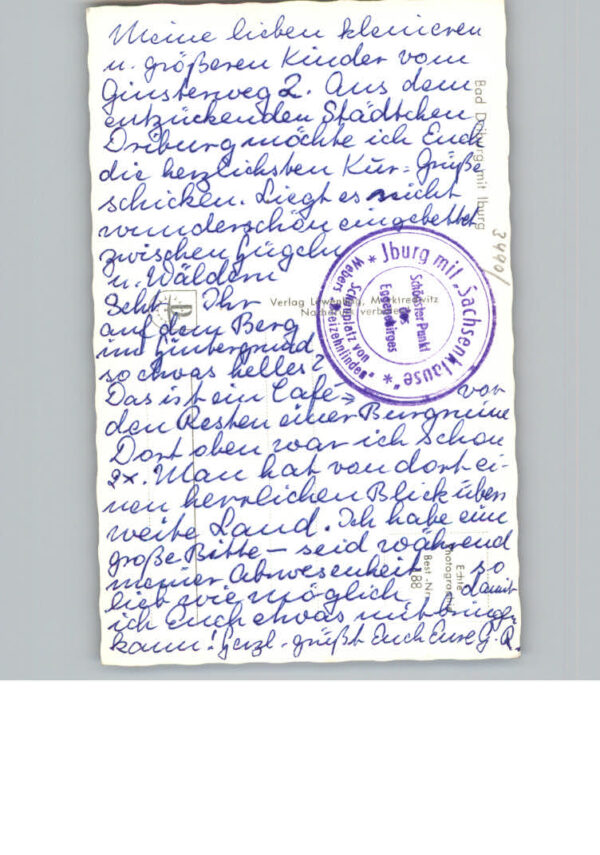 Meine lieben kleineren
u. größeren Kinder vom
Ginsterweg 2. Aus dem
entzückenden Städtchen
Driburg möchte ich Euch
die herzlichsten Kur-Grüße
schicken. Liegt es nicht
wunderschön eingebettet
zwischen Hügeln
u. Wäldern
Seht Ihr
auf dem Berg
im Hintergrund
so etwas helles?
Das ist ein Café → vor
den Resten einer Burgruine
Dort oben war ich schon
2x. Man hat von dort ei-
nen herrlichen Blick übers
weite Land. Ich habe eine
große Bitte — seid während
meiner Abwesenheit so
lieb wie möglich damit
ich Euch etwas mitbringen
kann! Herzl. grüßt Euch Eure G. R.
Bad Driburg mit Iburg
3490/
Verlag Marktredwitz
* Jburg mit „Sachsenklause" *
Schönster Punkt
des
Eggegebirges
Schauplatz von
Webers „Dreizehnlinden"
Echte
Photographie
Best.-Nr.
188